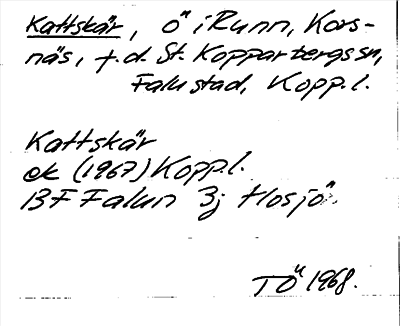 Kattskär, ö i Runn, Kors-
näs, f.d. St. Kopparbergs sn,
Falu stad, Kopp.l.
Kattskär
ek (1967) Kopp.l.
BF Falun 3j Hosjö.
TÖ 1968.